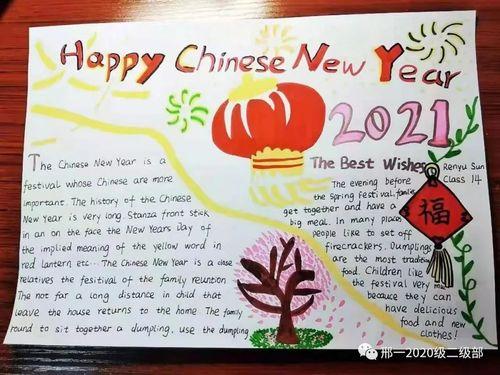 Happy Chinese New Year
2021
The Chinese New Year is a
festival whose Chinese are more
important. The history of the Chinese
New Year is very long. Stanza front stick
in an on the face the New Years Day of
the implied meaning of the yellow word in
red lantern etc... The Chinese New Year is a close
relatives the fesitival of the family reuntion
The not far a long distance in child that
leave the house returns to the home. The family
round to sit together a dumpling, use the dumpling
The Best Wishes
Renyu Sun
Class 14
The evening before
the Spring Festival, families
get together and have a
big meal. In many places
people like to set off
firecrackers. Dumplings
are the most tradition
food. Children like
the festival very
because they can
have delicious
food and new
clothes!
福
邢一2020级二级部